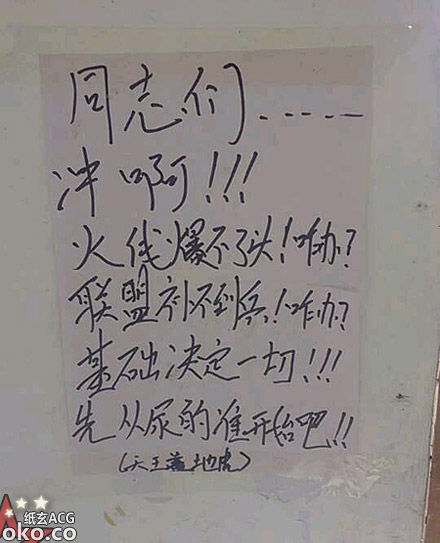 同志们.....
冲啊!!!
火线爆不了头!咋办?
联盟补不到兵!咋办?
基础决定一切!!!
先从尿的准开始吧!!
(天王盖地虎)
纸玄ACG
oko.co